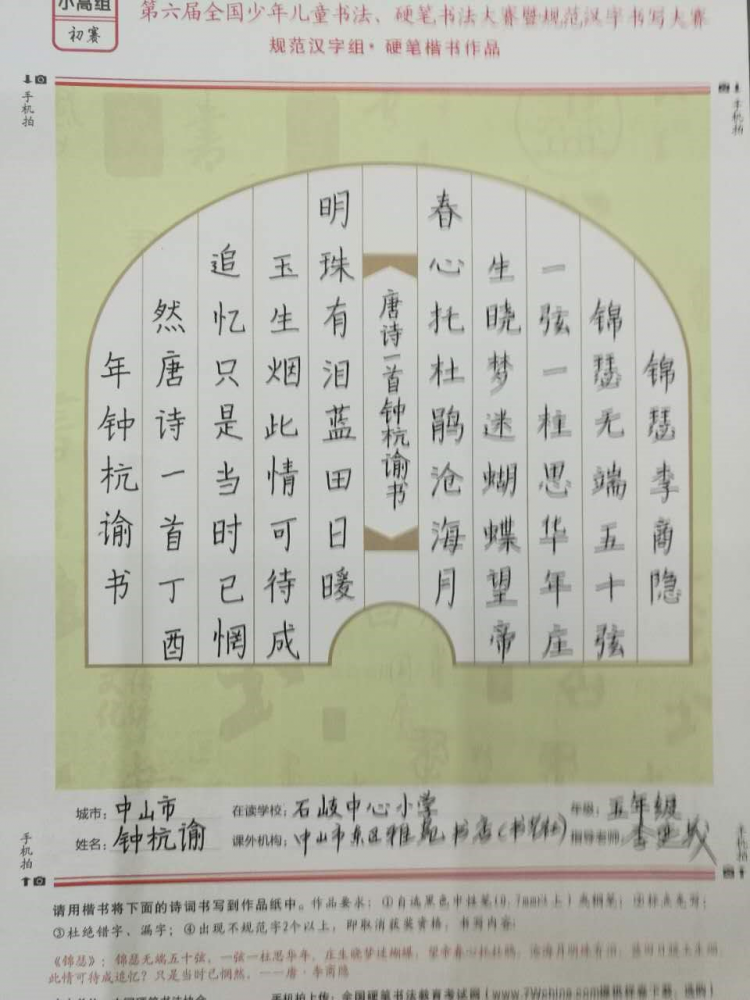 小高组
初赛
第六届全国少年儿童书法、硬笔书法大赛暨规范汉字书写大赛
规范汉字组·硬笔楷书作品
手机拍
手机拍
锦瑟李商隐
锦瑟无端五十弦
一弦一柱思华年庄
生晓梦迷蝴蝶望帝
春心托杜鹃沧海月
唐诗一首钟杭谕书
明珠有泪蓝田日暖
玉生烟此情可待成
追忆只是当时已惘
然唐诗一首丁酉
年钟杭谕书
城市：中山市 在读学校：石岐中心小学 年级：五年级
姓名：钟杭谕 课外机构：中山市东区雅苑书店(书艺社) 指导老师：李
手机拍
手机拍
请用楷书将下面的诗词书写到作品纸中。作品要求：①自选黑色中性笔(0.7mm以上)
③杜绝错字、漏字；④出现不规范字2个以上，即取消获奖资格，书写内容：
《锦瑟》：锦瑟无端五十弦，一弦一柱思华年。庄生晓梦迷蝴蝶，望帝春心托杜鹃。沧海月明珠有泪，蓝田日暖玉生烟。
此情可待成追忆？只是当时已惘然。——唐·李商隐